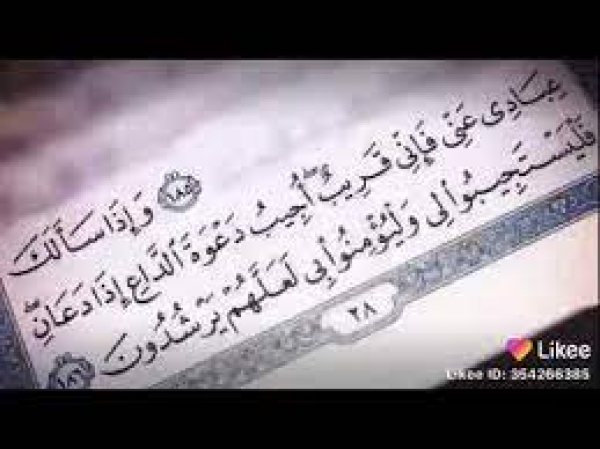 ﴿١٨٥﴾ وَإِذَا سَأَلَكَ
عِبَادِي عَنِّي فَإِنِّي قَرِيبٌ ۖ أُجِيبُ دَعْوَةَ الدَّاعِ إِذَا دَعَانِ ۖ
فَلْيَسْتَجِيبُوا لِي وَلْيُؤْمِنُوا بِي لَعَلَّهُمْ يَرْشُدُونَ ﴿١٨٦﴾
٢٨
Likee
Likee ID: 354266385